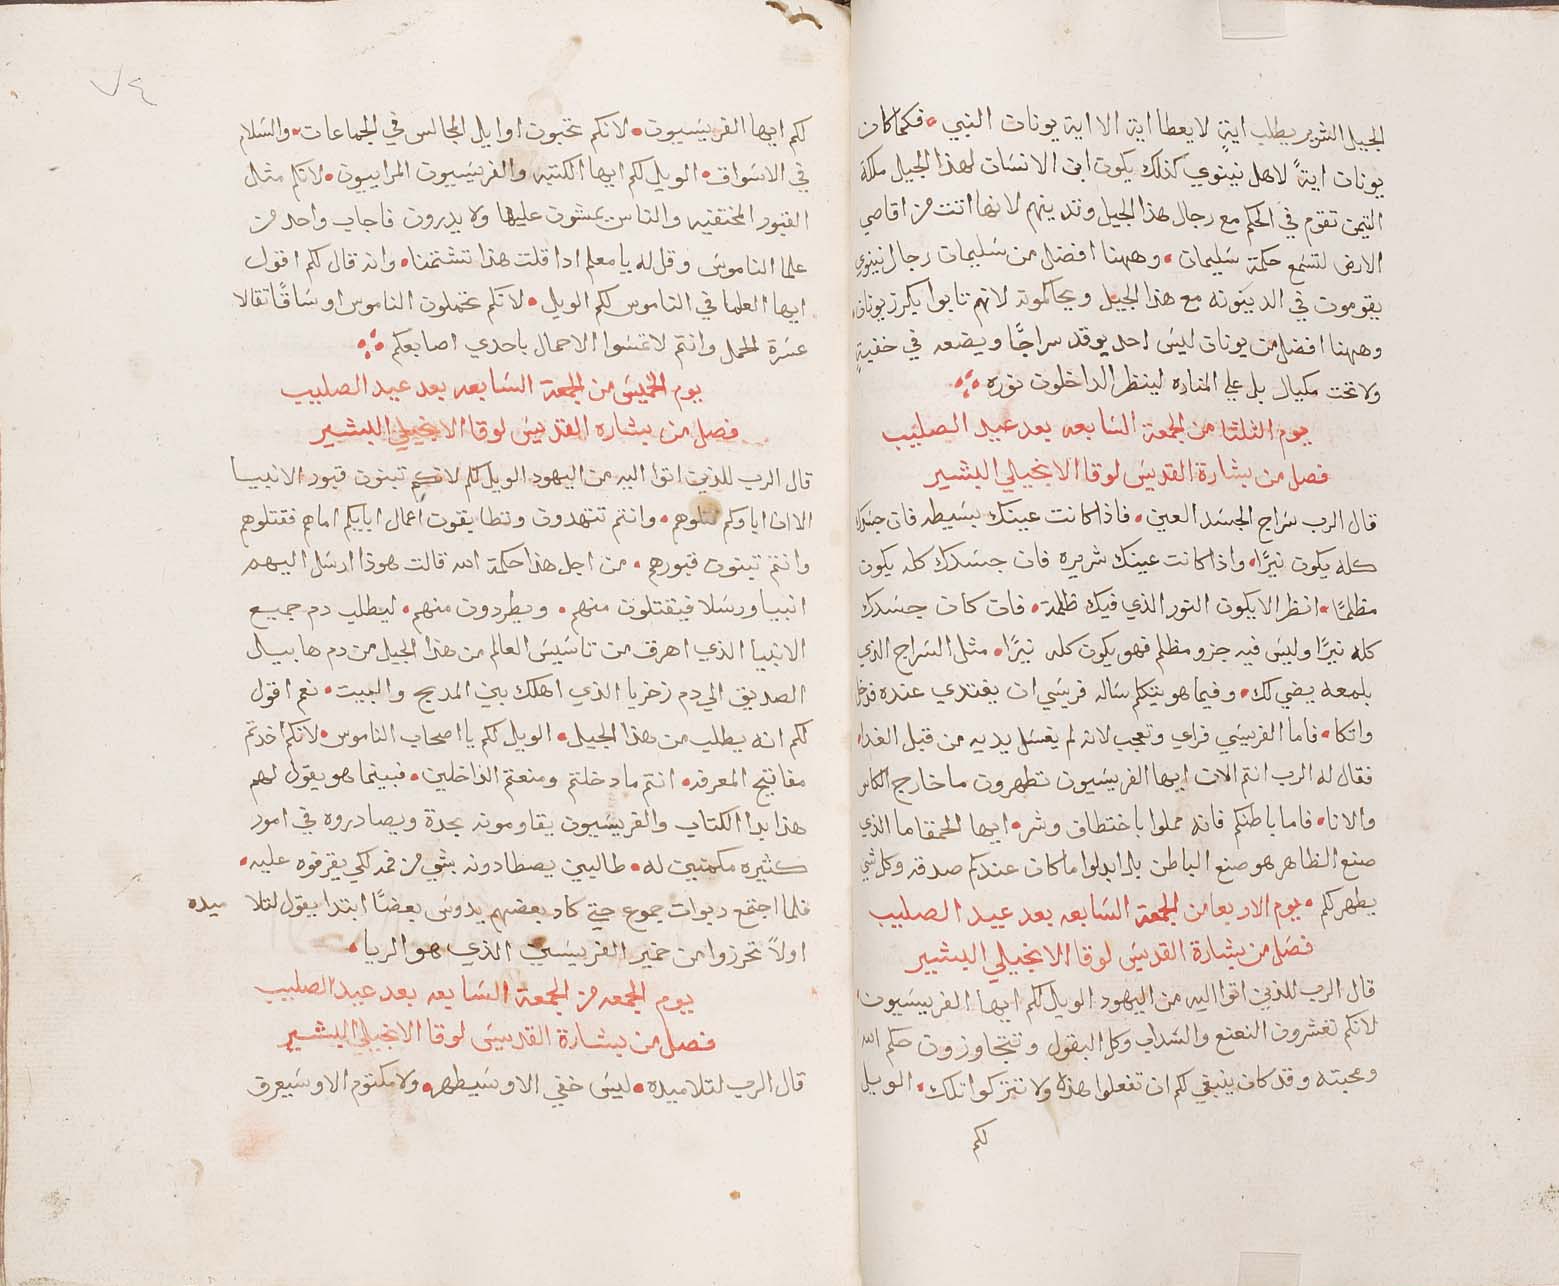 الجيل الشرير يطلب ايةٍ لا يعطا اية الا اية يونان النبي • فكما كان
يونان ايةً لاهل نينوي كذلك يكون ابن الانسان لهذا الجيل ملكة
التيمن تقوم في الحكم مع رجال هذا الجيل وتدينهم لانها اتت من اقاصي
الارض لتسمع حكمة سليمان • وههنا افضل من سليمان رجال نينوي
يقومون في الدينونه مع هذا الجيل ويحاكمونه لانهم تابوا بكرز يونان •
وههنا افضل من يونان ليس احد يوقد سراجًا ويضعه في خفيةٍ
ولا تحت مكيال بل علي المناره لينظر الداخلون نوره
يوم الثلثا من الجمعة السابعه بعد عيد الصليب
فصل من بشارة القديس لوقا الانجيلي البشير
قال الرب سراج الجسد العين • فاذا كانت عينك بسيطه فان جسدك
كله يكون نيرًا • واذا كانت عينك شريره فان جسدك كله يكون
مظلمًا • انظر الا يكون النور الذي فيك ظلمة • فان كان جسدك
كله نيرًا وليس فيه جزو مظلم فهو يكون كله نيرًا • مثل السراج الذي
بلمعه يضي لك • وفيما هو يتكلم ساله فريسي ان يغتدي عنده فدخل
واتكا • فاما الفريسي فراي وتعجب لانه لم يغسل يديه من قبل الغدا •
فقال له الرب انتم الان ايها الفريسيون تطهرون ما خارج الكاس
والانا • فاما باطنكم فانه مملوا باختطاف وشر • ايها الحمقا ما الذي
صنع الظاهر هو صنع الباطن بل ابدلوا ما كان عندكم صدقه وكل شي
يطهر لكم • يوم الاربعا من الجمعة السابعه بعد عيد الصليب
فصل من بشارة القديس لوقا الانجيلي البشير
قال الرب للذين اتوا اليه من اليهود الويل لكم ايها الفريسيون
لانكم تعشرون النعنع والسداب وكل البقول وتتجاوزون حكم الله
ومحبته وقد كان ينبغي لكم ان تفعلوا هذه ولا تتركوا تلك • الويل
لكم
٧٤
لكم ايها الفريسيون • لانكم تحبون اوايل المجالس في الجماعات • والسلام
في الاسواق • الويل لكم ايها الكتبه والفريسيون المراييون • لانكم مثل
القبور المختفيه والناس يمشون عليها ولا يدرون فاجاب واحد من
علما الناموس وقال له يا معلم اذا قلت هذا تشتمنا • واند قال لكم اقول
ايها العلما في الناموس لكم الويل • لانكم تحملون الناموس اوساقًا ثقالا
عسرة الحمل وانتم لا تمسوا الاحمال باحدي اصابعكم
يوم الخميس من الجمعة السابعه بعد عيد الصليب
فصل من بشاره القديس لوقا الانجيلي البشير
قال الرب للذين اتوا اليه من اليهود الويل لكم لانكم تبنون قبور الانبيا
الا ان اباوكم قتلوهم • وانتم تشهدون وتطابقون اعمال ابايكم اما هم فقتلوهم
وانتم تبنون قبورهم • من اجل هذا حكمة الله قالت هوذا ارسل اليهم
انبيا ورسلا فيقتلون منهم • ويطردون منهم • ليطلب دم جميع
الانبيا الذي اهرق من تاسيس العالم من هذا الجيل من دم هابيل
الصديق الي دم زخريا الذي اهلك بين المدبح والبيت • نعم اقول
لكم انه يطلب من هذا الجيل • الويل لكم يا اصحاب الناموس • لانكم اخدتم
مفاتيح المعرفه • انتم ما دخلتم ومنعتم الداخلين • فبينما هو يقول لهم
هذا بدا الكتاب والفريسيون يقاومونه بحدة ويصادروه في امور
كثيره مكمنين له • طالبين يصطادونه بشي من فمه لكي يقرفوه عليه •
فلما اجتمع ربوات جموع حتي كاد بعضهم يدوس بعضًا ابتدا يقول لتلاميده
اولاً تحرزوا من خمير الفريسيين الذي هو الريا •
يوم الجمعه من الجمعة السابعه بعد عيد الصليب
فصل من بشارة القديس لوقا الانجيلي البشير
قال الرب لتلاميده • ليس خفي الا وسيظهر • ولا مكتوم الا وسيعرف